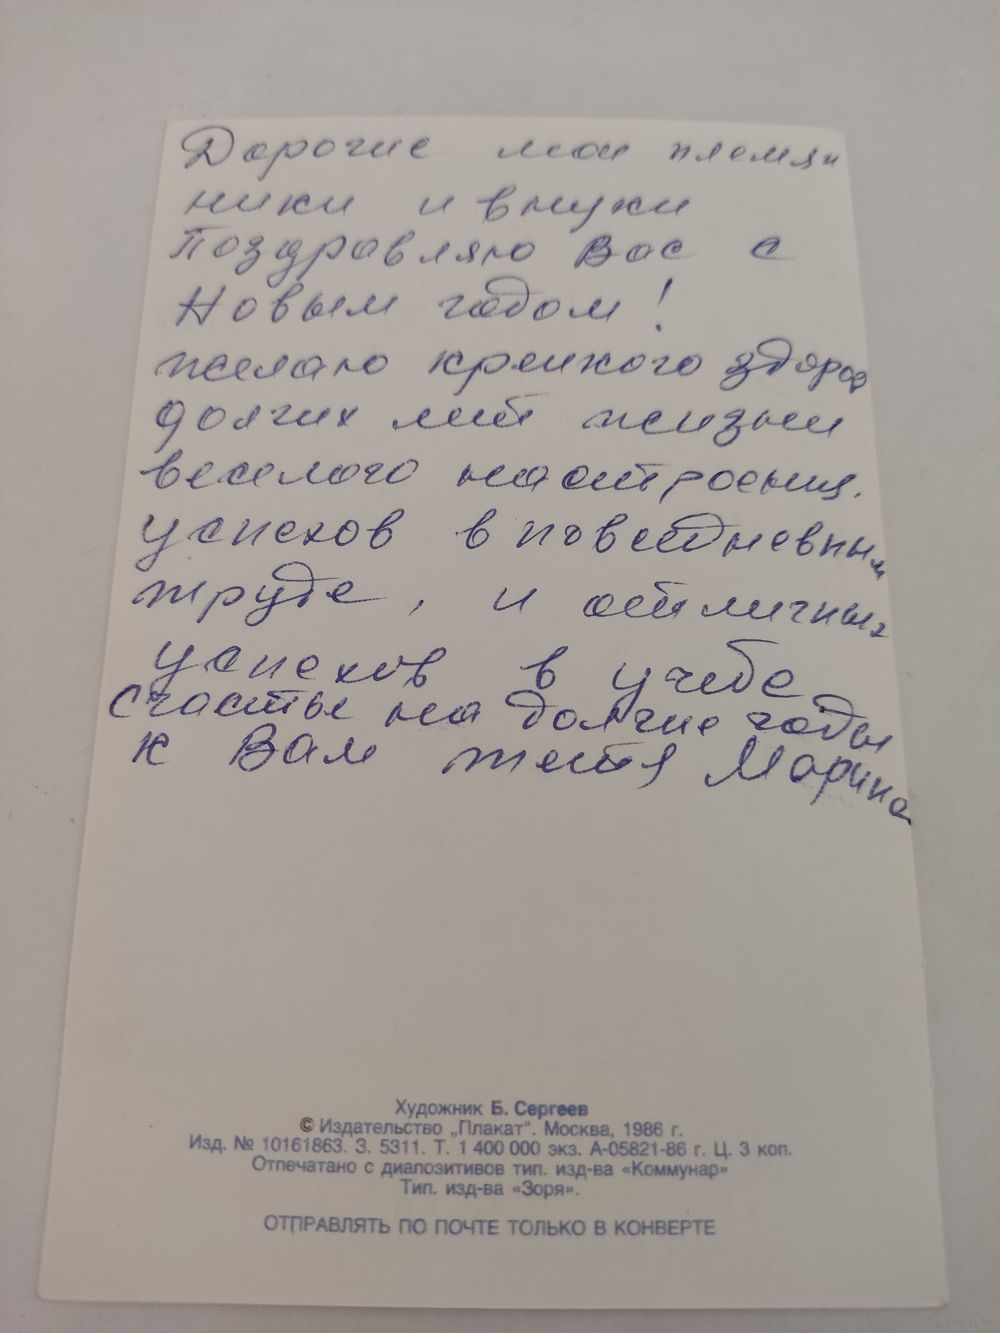 Дорогие мои племян
ники и внуки
поздравляю Вас с
Новым годом!
желаю крепкого здоров
долгих лет жизни
веселого настроения.
успехов в повседневным
труде, и отличных
успехов в учебе
счастье на долгие годы
к Вам тетя Марина
Художник Б. Сергеев
© Издательство „Плакат“. Москва, 1986 г.
Изд. № 10161863. З. 5311. Т. 1 400 000 экз. А-05821-86 г. Ц. 3 коп.
Отпечатано с диапозитивов тип. изд-ва «Коммунар»
Тип. изд-ва «Зоря».
ОТПРАВЛЯТЬ ПО ПОЧТЕ ТОЛЬКО В КОНВЕРТЕ